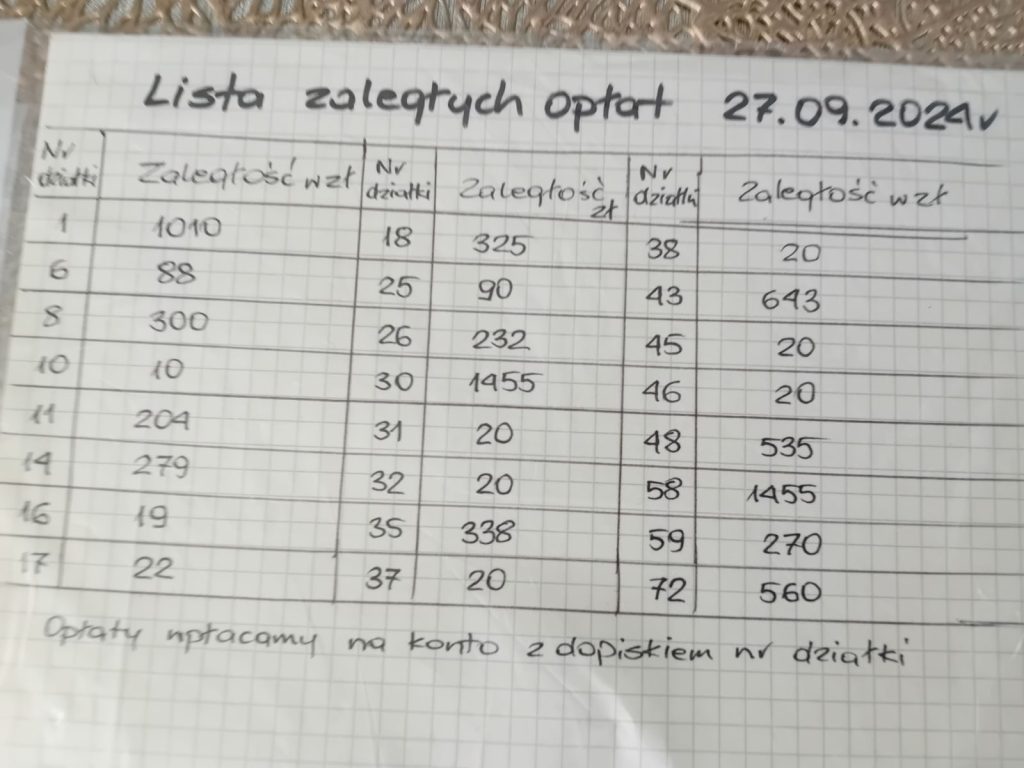 Lista zaległych opłat 27.09.2024r
Nr działki Zaległość w zł Nr działki Zaległość zł Nr działki Zaległość w zł
1 1010 18 325 38 20
6 88 25 90 43 643
8 300 26 232 45 20
10 10 30 1455 46 20
11 204 31 20 48 535
14 279 32 20 58 1455
16 19 35 338 59 270
17 22 37 20 72 560
Opłaty wpłacamy na konto z dopiskiem nr działki